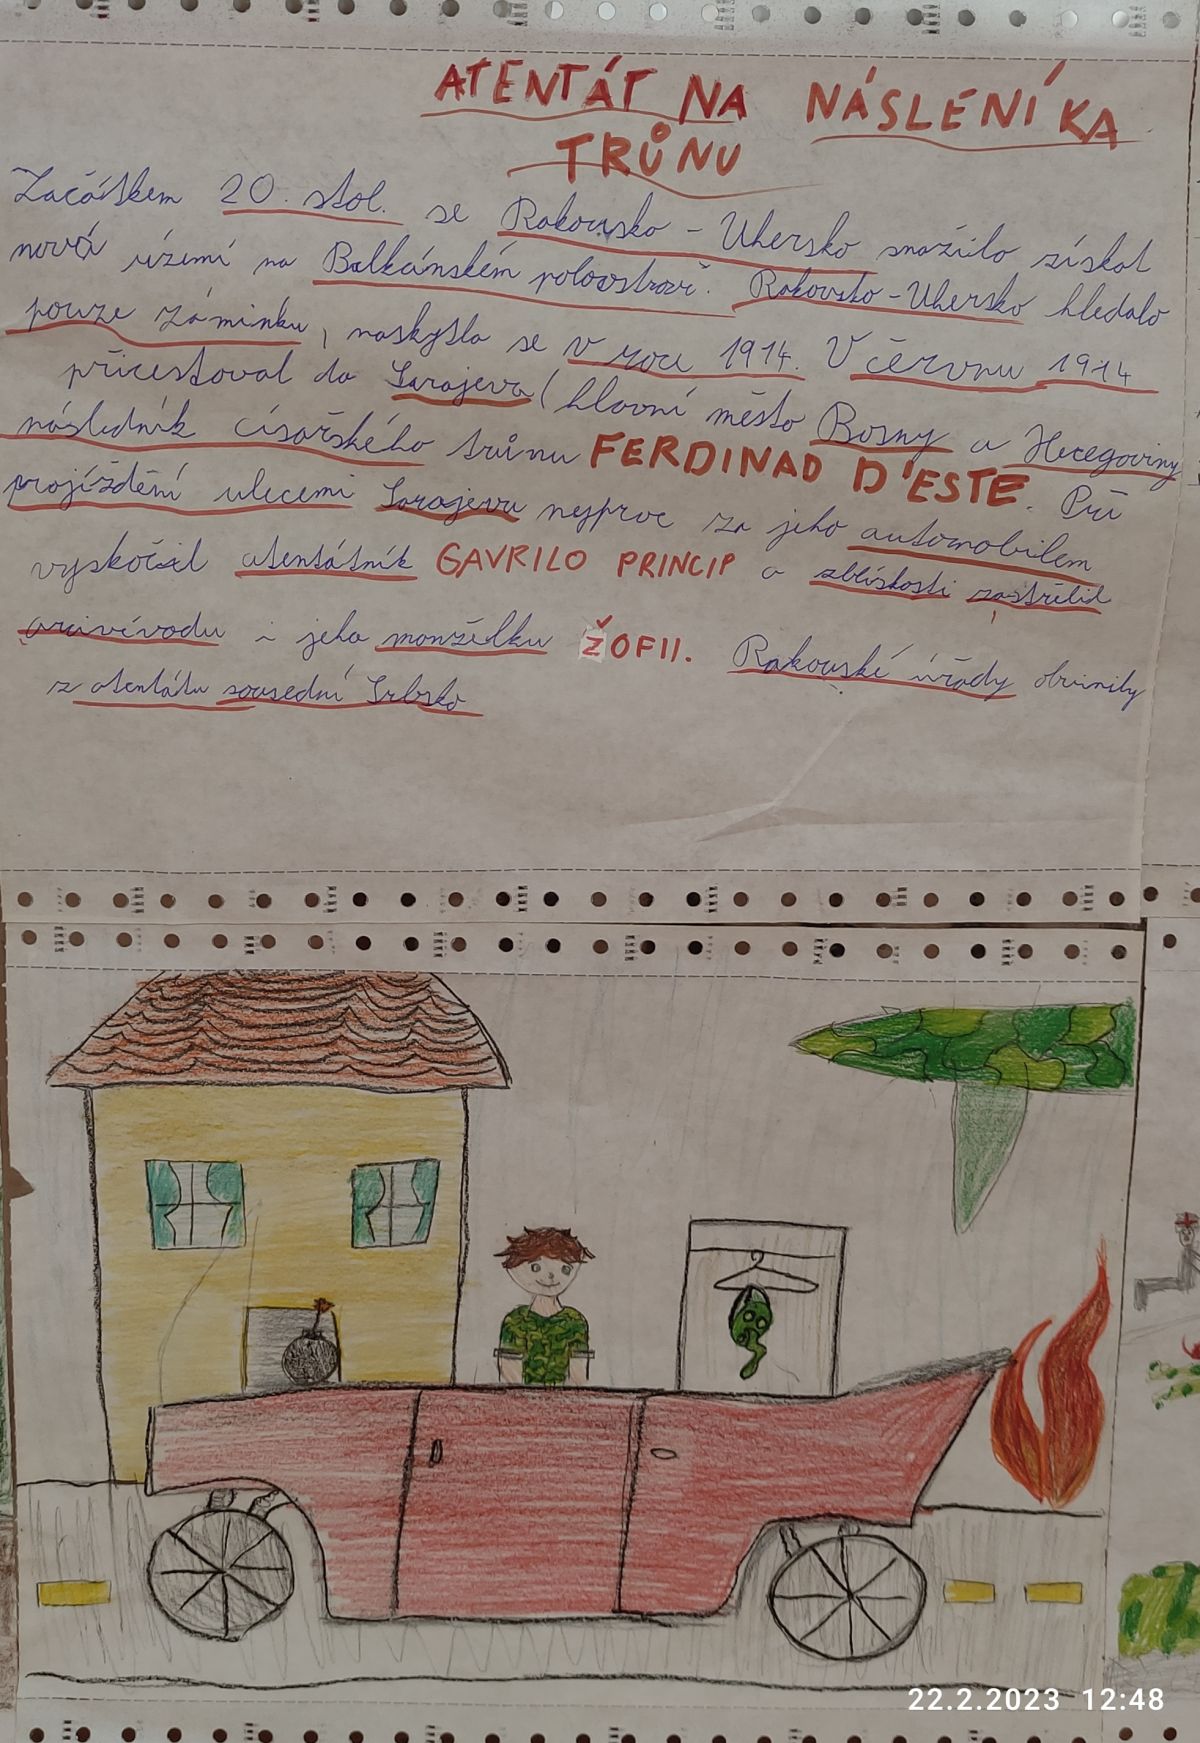 ATENTÁT NA NÁSLENÍKA
TRŮNU
Začátkem 20. stol. se Rakousko - Uhersko snažilo získat
nová území na Balkánském poloostrově. Rakousko-Uhersko hledalo
pouze záminku, naskytla se v roce 1914. V červnu 1914
přicestoval do Sarajeva (hlavní město Bosny a Hecegoviny
následník císařského trůnu FERDINAD D'ESTE. Při
projíždění ulicemi Sarajeva nejprve za jeho automobilem
vyskočil atentátník GAVRILO PRINCIP a zblískosti zastřelil
arcivévodu i jeho manželku ŽOFII. Rakouské úřady obvinily
z atentátu sousední Srbsko
22.2.2023 12:48